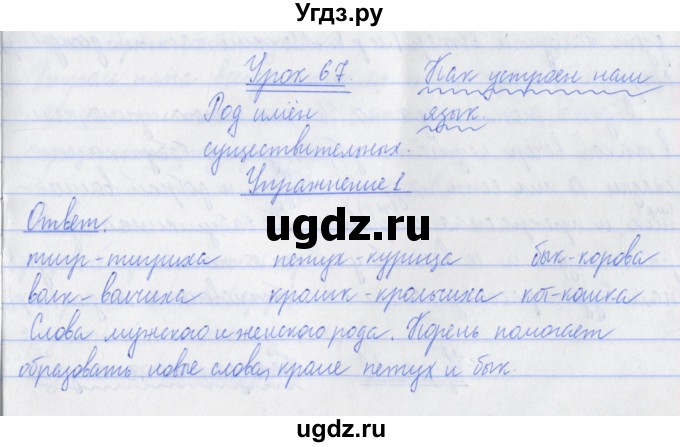 Угдз.ру
Урок 67. Как устроен наш
Род имён язык.
существительных.
Упражнение 1
Ответ.
тигр-тигриха петух-курица бык-корова
волк-волчиха кролик-крольчиха кот-кошка
Слова мужского и женского рода. Корень помогает
образовать новые слова, кроме петух и бык.
ugdz.ru
ugdz.ru
ugdz.ru
ugdz.ru